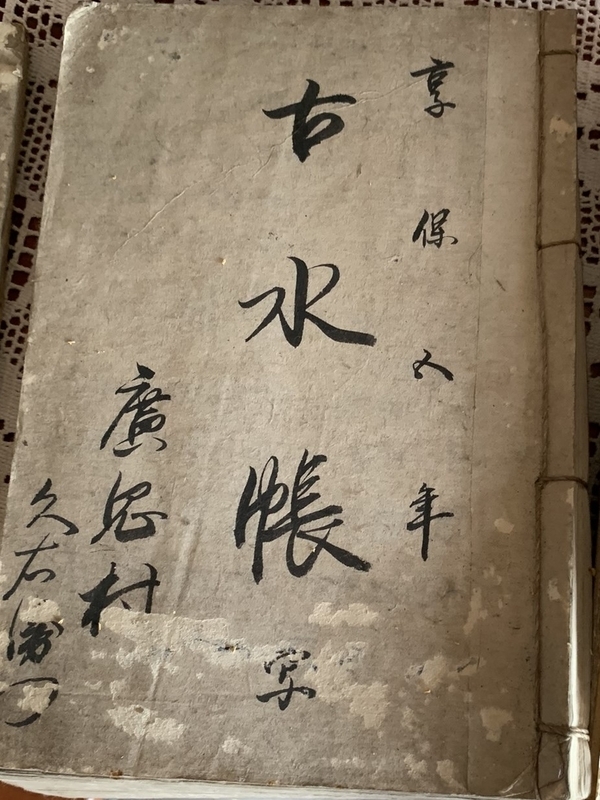 享保五年
古水帳 写
廣 村
久右衛門